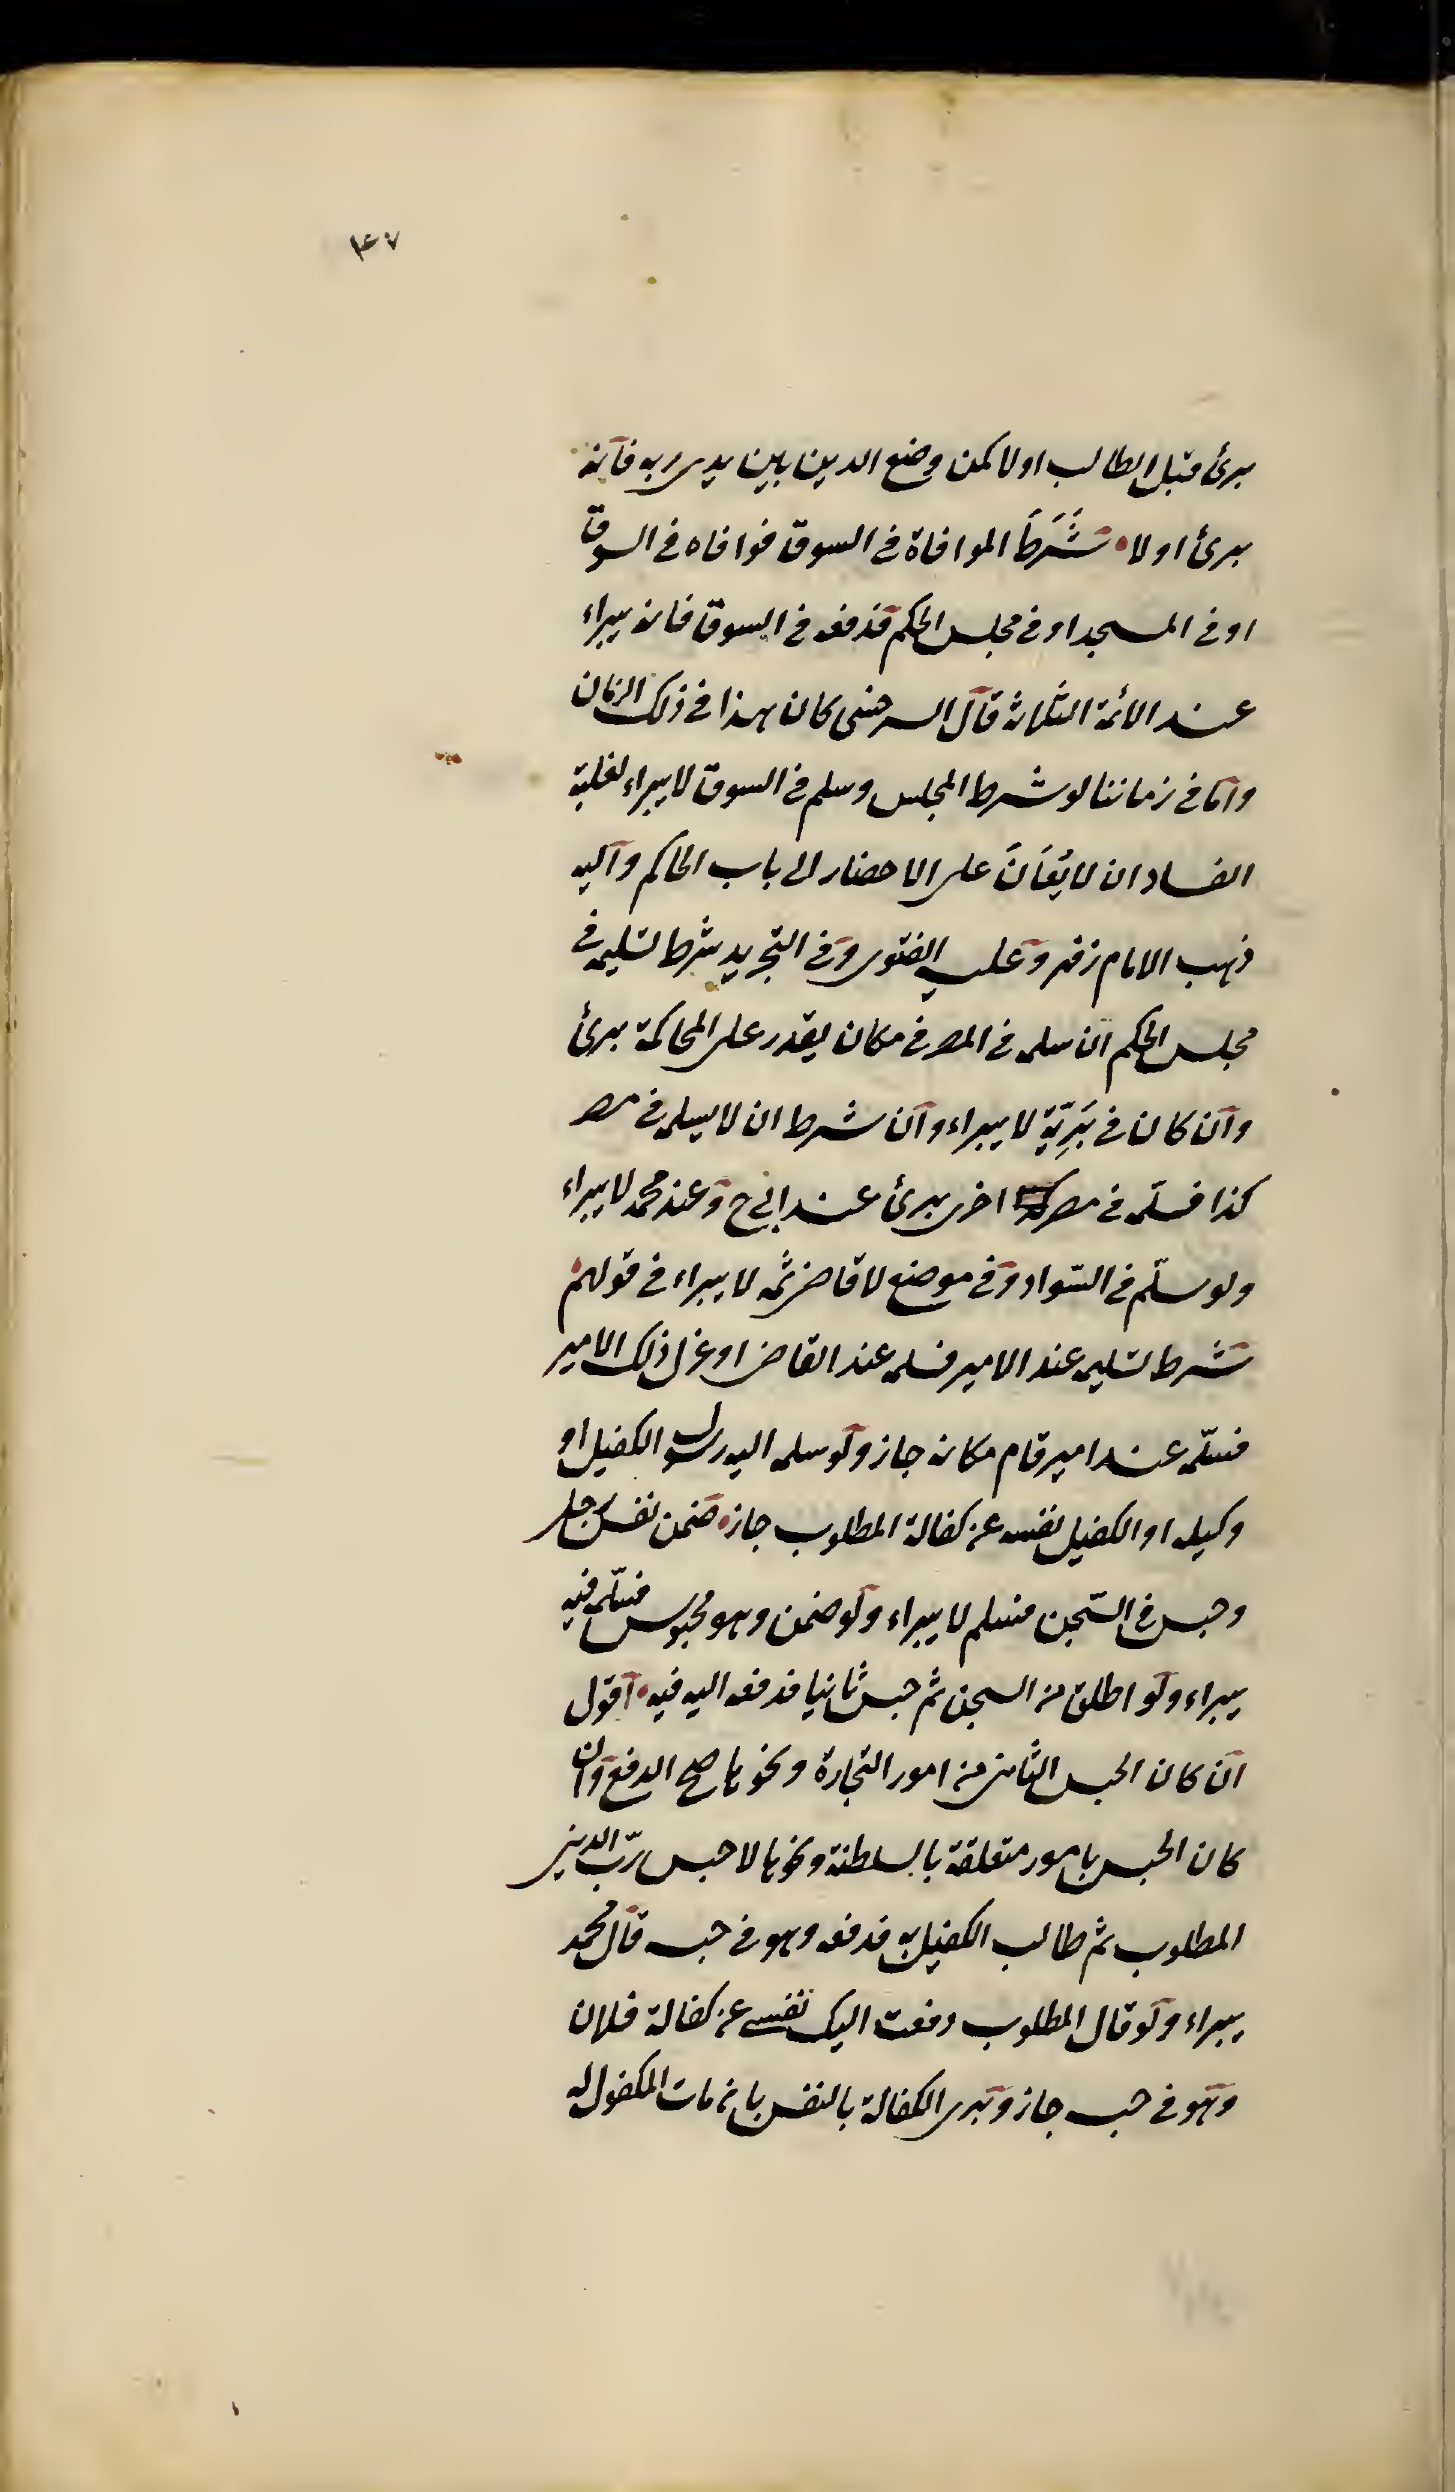 ١٤٧
برئ قبل الطالب او لا كمن وضع الدين بين يدى ربه فانه
برئ او لا شَرَطَ الموافاة فى السوق فوافاه فى السوق
او فى المسجد او فى مجلس الحكم فدفعه فى السوق فانه يبراء
عند الائمة الثلاثة قال السرخسى كان هذا فى ذلك الزمان
واما فى زماننا لو شرط المجلس وسلم فى السوق لا يبراء لغلبة
الفساد ان لا يُعَانَ على الاحضار الى باب الحاكم واليه
ذهب الامام زفر وعليه الفتوى وفى التجريد شرط تسليمه فى
مجلس الحكم ان سلمه فى المصر فى مكان يقدر على المحاكمة برئ
وان كان فى بَرِيّةٍ لا يبراء وان شرط ان لا يسلمه فى مصر
كذا فسلّمه فى مصر اخرى برئ عند ابى ح وعند محمد لا يبراء
ولو سلّم فى السّواد وفى موضع لا قاضى ثمّه لا يبراء فى قولهم
شرط تسليمه عند الامير فسلمه عند القاضى او عزل ذلك الامير
فسلّمه عند امير قام مكانه جاز ولو سلمه اليه رسول الكفيل او
وكيله او الكفيل نفسه عن كفالة المطلوب جاز ضمن نفس رجل
وحبس فى السّجن فسلم لا يبراء ولو ضمن وهو محبوس فسلّمه فيه
يبراء ولو اطلق من السجن ثم حبس ثانيا فدفعه اليه فيه اقول
ان كان الحبس الثانى من امور التجارة ونحوها صح الدفع وان
كان الحبس بامور متعلقة بالسلطنة ونحوها لا حبس ربّ الدين
المطلوب ثم طالب الكفيل به فدفعه وهو فى حبسه قال محمد
يبراء ولو قال المطلوب دفعت اليك نفسى عن كفالة فلان
وهو فى حبسه جاز وتبرى الكفالة بالنفس بانه مات المكفول له